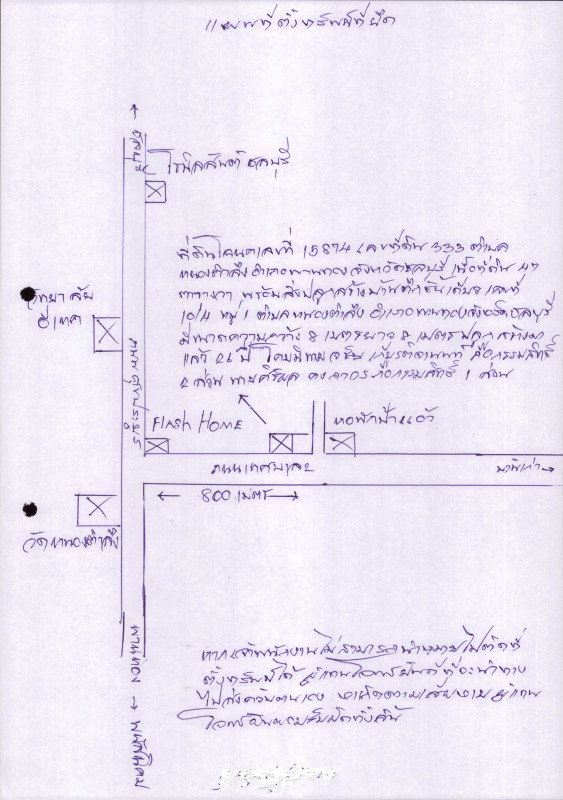 แผนที่ตั้งทรัพย์ที่ยึด
ชลบุรี
ที่ดินโฉนดเลขที่ 15874 เลขที่ดิน 333 ตำบล
หนองตำลึง อำเภอพานทอง จังหวัดชลบุรี เนื้อที่ดิน 47
ตารางวา พร้อมสิ่งปลูกสร้างบ้านตึกชั้นเดียว เลขที่
10/4 หมู่ 1 ตำบลหนองตำลึง อำเภอพานทองจังหวัดชลบุรี
มีขนาดความกว้าง 8 เมตรยาว 8 เมตรปลูกสร้างมา
แล้ว ปี โดยมีนาย ถือกรรมสิทธิ์
2 ส่วน นายศิริพล ถือกรรมสิทธิ์ 1 ส่วน
วิทยาลัย
ถนนศุขประยูร
FLASH HOME
หอพักฟ้าแก้ว
ถนนเทศบาล 2
800 เมตร
วัดหนองตำลึง
หากเจ้าพนักงานไม่สามารถนำหมายไปติดที่
ตั้งทรัพย์ได้ ผู้แทนโจทก์ยินดีที่จะนำทาง
ไปส่งด้วยตนเอง หากเกิดความเสียหาย ผู้แทน
โจทก์ยินยอมรับผิดทั้งสิ้น
พานทอง → พนัสนิคม